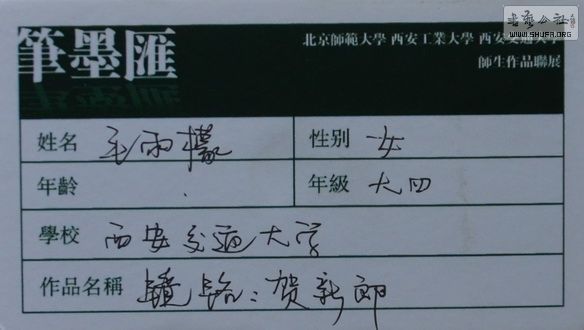 书艺公社
WWW.SHUFA.ORG
筆墨匯
北京師範大學 西安工業大學 西安交通大學
師生作品聯展
姓名 雨檬 性別 女
年齡 年級 大四
學校 西安交通大学
作品名稱 贺新郎